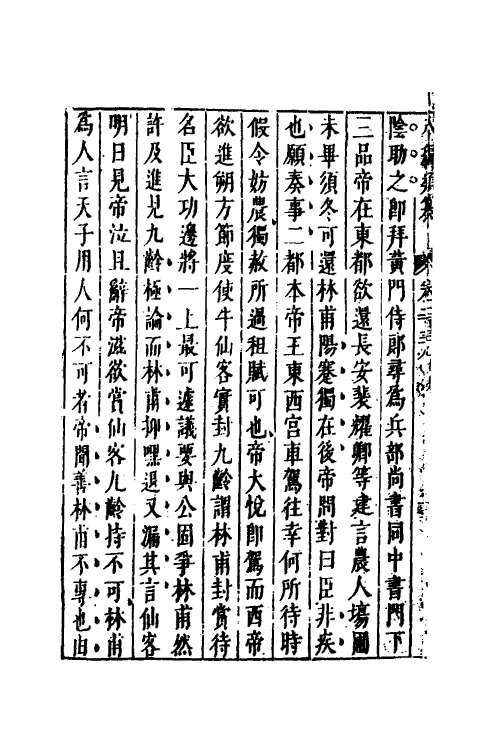 陰助之即拜黄門侍郎尋爲兵部尚書同中書門下
三品帝在東都欲還長安裴耀卿等建言農人場圃
未畢須冬可還林甫陽蹇獨在後帝問對曰臣非疾
也願奏事二都本帝王東西宮車駕往幸何所待時
假令妨農獨赦所過租賦可也帝大悅即駕而西帝
欲進朔方節度使牛仙客實封九齡謂林甫封賞待
名臣大功邊將一上最可遽議要與公固爭林甫然
許及進見九齡極論而林甫抑嘿退又漏其言仙客
明日見帝泣且辭帝滋欲賞仙客九齡持不可林甫
爲人言天子用人何不可者帝聞善林甫不專也由